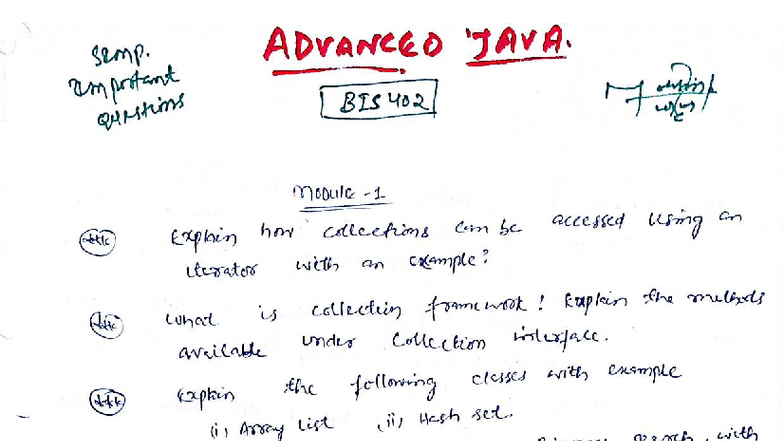 ADVANCED JAVA.
Important
Questions
BIS402
Module -1
*** Explain how collections can be accessed using an
iterator with an example?
*** What is collection framework! Explain the methods
available under collection interface.
*** Explain the following classes with example
(i) Array List (ii) Hash set.
with